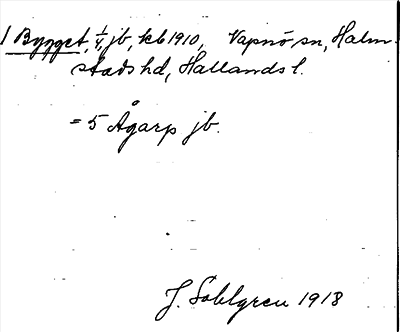 1 Bygget, 1/4, jb, kb 1910, Vapnö sn, Halm-
stads hd, Hallands l.
= 5 Ågarp jb.
J. Sahlgren 1918